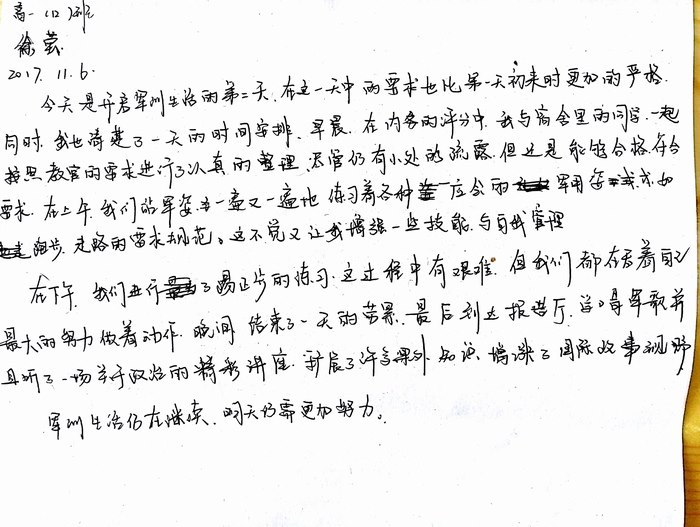 高一（12）班
徐芸
2017. 11. 6.
今天是开启军训生活的第二天，在这一天中的要求也比第一天初来时更加的严格.
同时，我也清楚了一天的时间安排，早晨，在内务的评分中，我与宿舍里的同学一起
按照教官的要求进行了认真的整理，尽管仍有小处的疏露，但还是能够合格，符合
要求. 在上午，我们站军姿，一遍又一遍地练习着各种应会的军用姿式，如
跑步、走路的要求规范。这不觉又让我增强一些技能，与自我管理
在下午，我们进行了踢正步的练习，这过程中有艰难，但我们都在尽着自己
最大的努力做着动作，晚间，结束了一天的苦累，最后到达报告厅，学唱军歌并
且听了一场关于政治的精彩讲座，扩展了许多课外知识，增涨了国际故事视野
军训生活仍在继续，明天仍需更加努力。